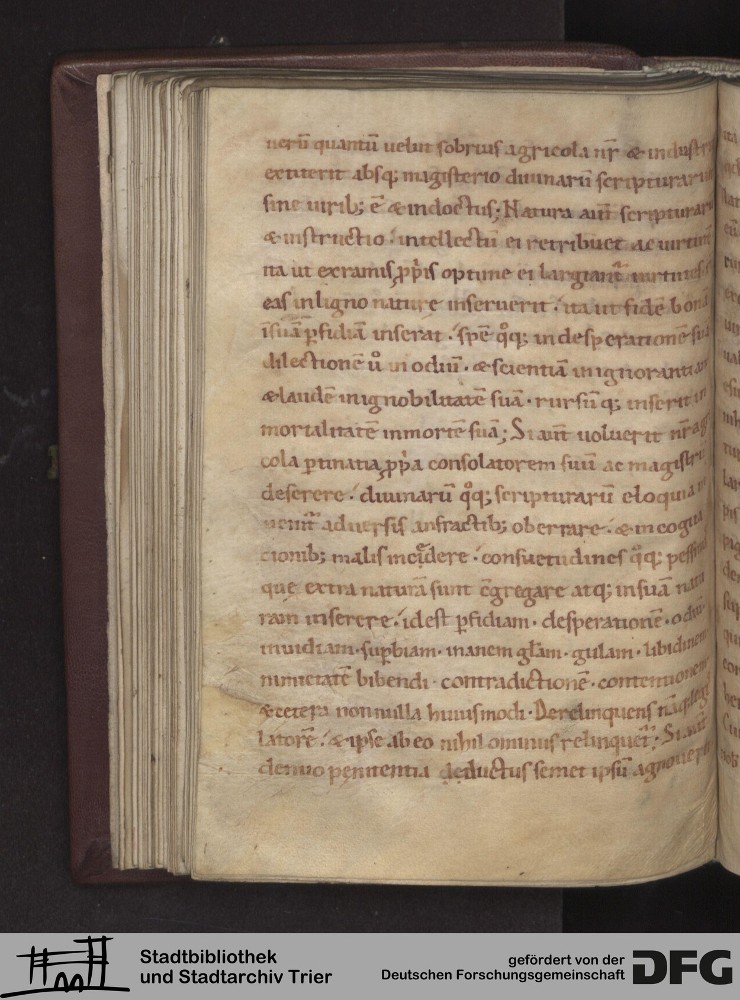 nerū quantū uelut sobrius agricola nr̄ & industri
extiterit absq; magisterio diuinarū scripturarū
sine uirib; ē & indoctus; Natura aūt scripturarū
& instructio intellectū ei retribuet ac uirtutē
ita ut ex ramis p̄priis optime ei largiant᷑ uirtutes si
eas in ligno nature inseruerit. ita ut fidē bonā
ī suā ꝑfidiā inserat. spē q̊q; in desperationē suā
dilectionē ů in odiū. & scientiā in ignorantiam
& laudē in ignobilitatē suā. rursūq; inserit in
mortalitatē in mortē suā; Si aūt uoluerit nr̄ agri
cola ꝑtinatia p̄pria consolatorem suū ac magistrū
deserere. diuinarū q̊q; scripturarū eloquiam
uenit᷑ aduersis anfractib; oberrare. & in cogita
tionib; malis incidere. consuetudines q̊q; pessimas
que extra naturā sunt c̄gregare atq; in suā natu
ram inserere. id est ꝑfidiam. desperationē. odiū.
inuidiam. suꝑbiam. inanem glām. gulam. libidinem
nimietatē bibendi. contradictionē. contentionem
& cetera nonnulla huiusmodi. Derelinquens nāq; legis
latorē. & ipse ab eo nihilominus relinquet᷑; Si aūt
denuo penitentia deductus semet ipsū agnouerit
Stadtbibliothek
und Stadtarchiv Trier
gefördert von der
Deutschen Forschungsgemeinschaft
DFG